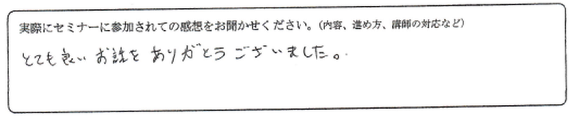 実際にセミナーに参加されての感想をお聞かせください。(内容、進め方、講師の対応など)
とても良いお話をありがとうございました。